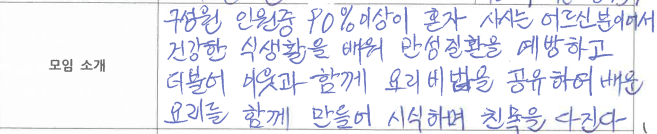 모임 소개
구성원 인원중 90%이상이 혼자 사시는 어르신분이여서
건강한 식생활을 배워 만성질환을 예방하고
더불어 이웃과 함께 요리비법을 공유하여 배운
요리를 함께 만들어 시식하며 친목을 다진다